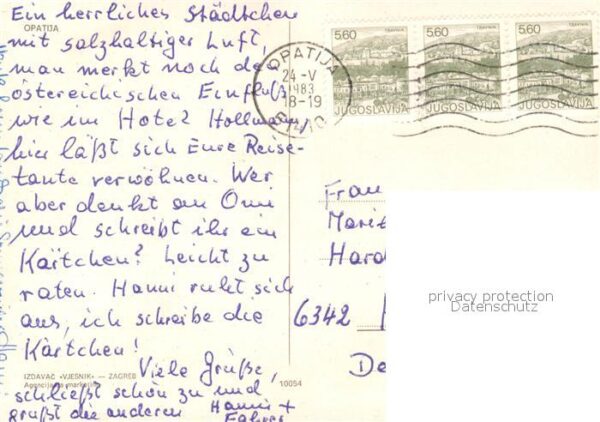 Ein herrliches Städtchen
OPATIJA
mit salzhaltiger Luft,
man merkt noch den
östereichischen Einfluß,
wie im Hotel
hier läßt sich Eure Reise-
tante verwöhnen. Wer
aber denkt an Omi
und schreibt ihr ein
Kärtchen? Leicht zu
raten. Hanni ruht sich
aus, ich schreibe die
Kärtchen!
Viele Grüße,
schließt schön zu und
grüßt die anderen
Hanni +
IZDAVAČ «VJESNIK» — ZAGREB
Agencija za marketing
10054
TRAVNIK
5.60
JUGOSLAVIJA
TRAVNIK
5.60
JUGOSLAVIJA
TRAVNIK
5.60
JUGOSLAVIJA
OPATIJA
24-V
1983
18-19
Frau
Marit
Hard
6342
De
privacy protection
Datenschutz